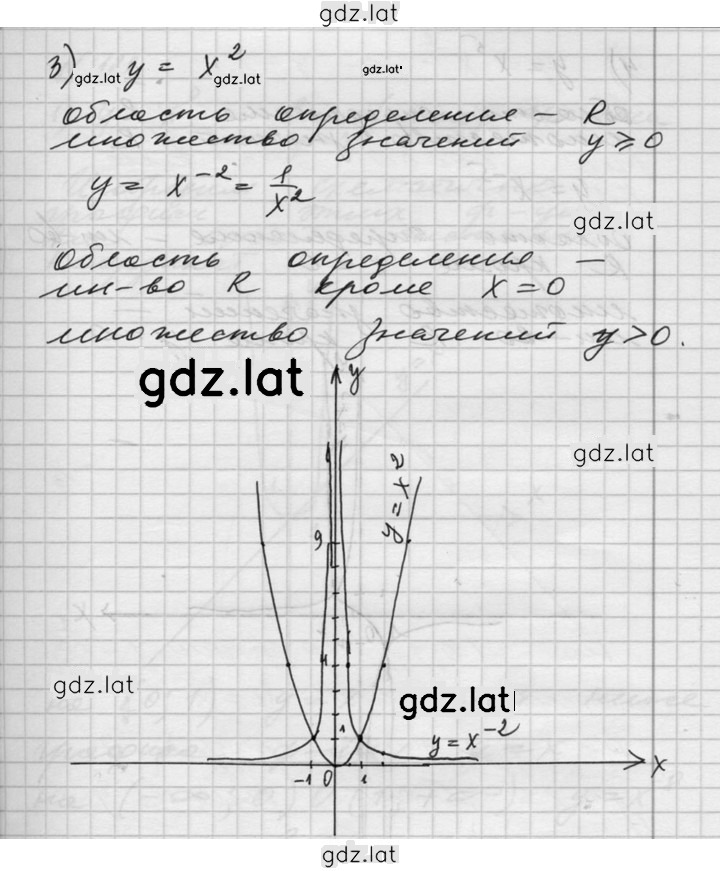 gdz.lat
3) y = x²
gdz.lat gdz.lat gdz.lat
область определения – R
множество значений y ≥ 0
y = x⁻² = 1/x²
gdz.lat
область определения –
мн-во R кроме x = 0
множество значений y > 0.
gdz.lat
y
gdz.lat
y = x²
9
4
gdz.lat
gdz.lat
1
y = x⁻²
-1 0 1 x
gdz.lat